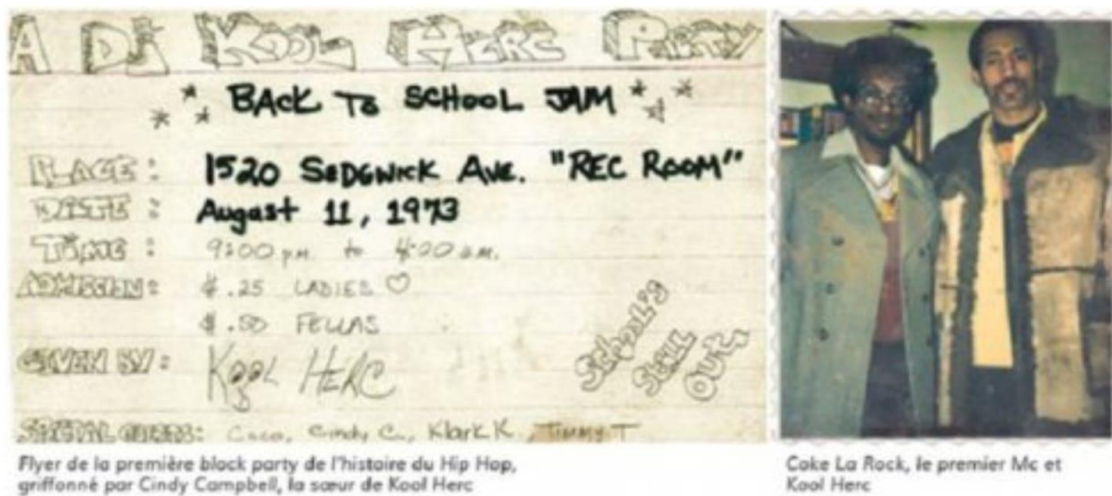 A DJ KOOL HERC PARTY
BACK TO SCHOOL JAM
PLACE : 1520 SEDGWICK AVE. "REC ROOM"
DATE : August 11, 1973
TIME : 9:00 p.m. to 4:00 a.m.
ADMISSION : $.25 LADIES ♡
$.50 FELLAS
GIVEN BY : KOOL HERC
School's
STILL
OUT,
SPECIAL GUESTS : Coco, Cindy C., Klark K., TIMMY T
Flyer de la première block party de l'histoire du Hip Hop,
griffonné par Cindy Campbell, la sœur de Kool Herc
Coke La Rock, le premier Mc et
Kool Herc